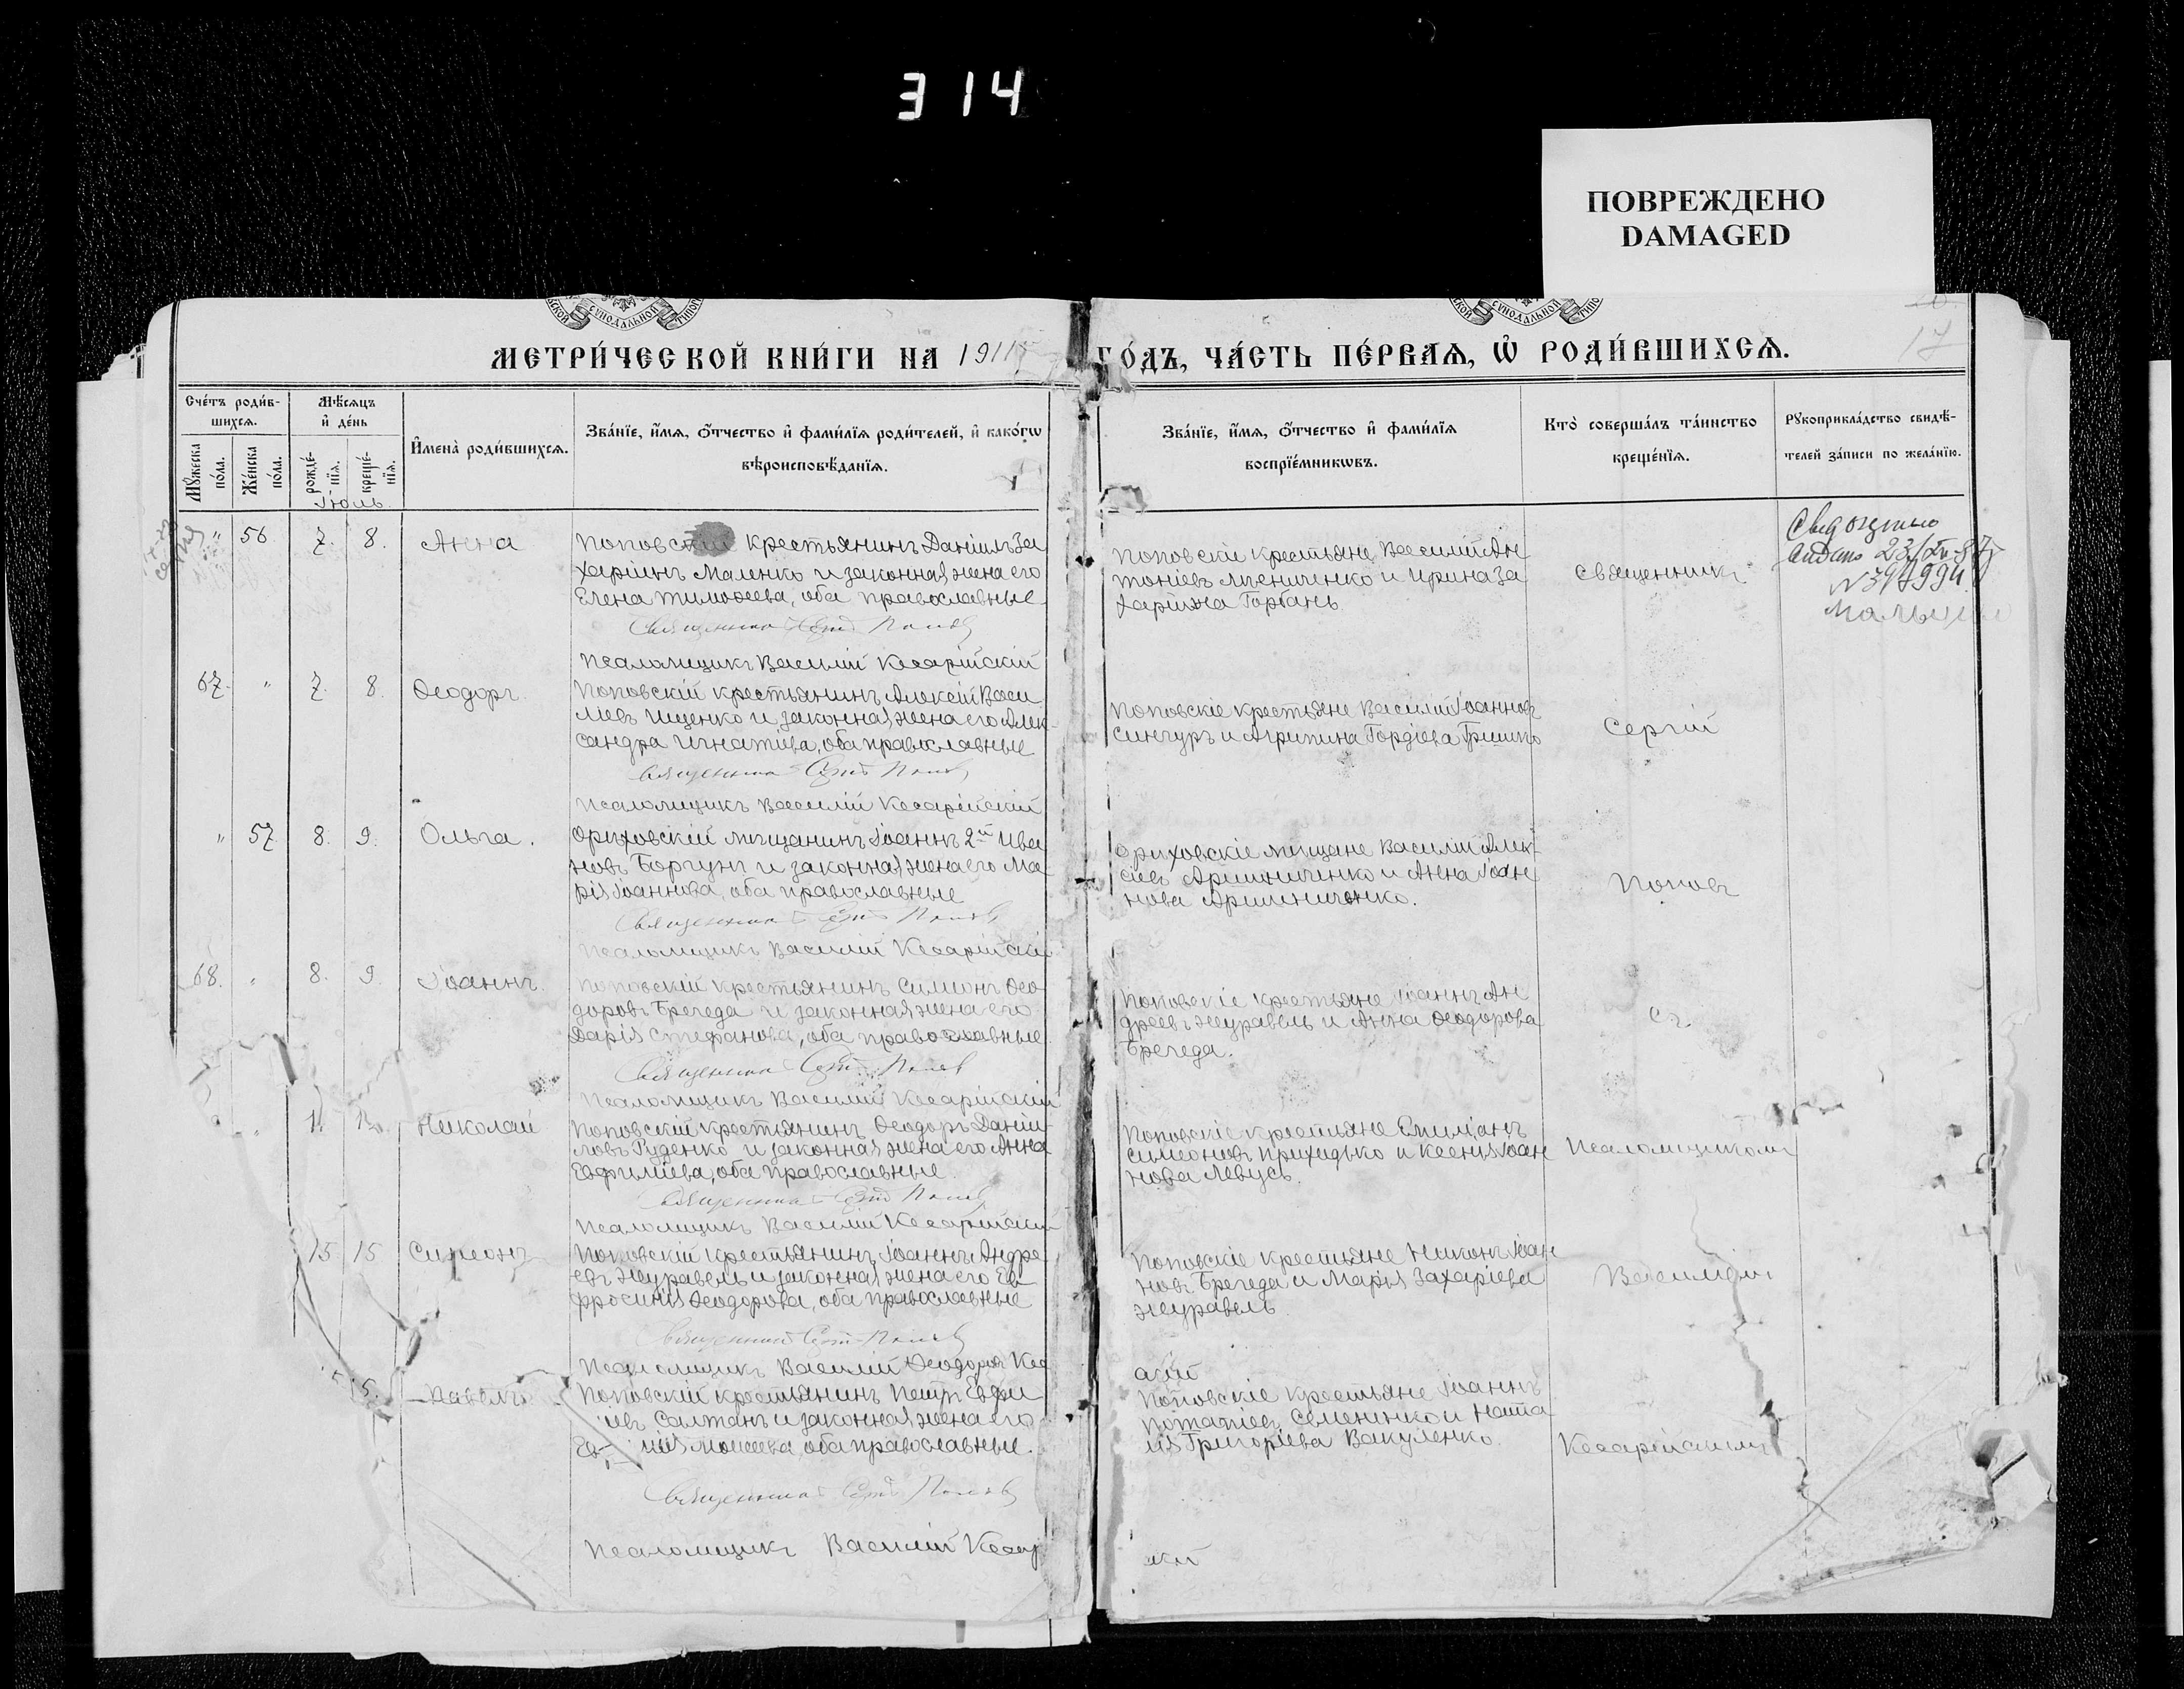 314
ПОВРЕЖДЕНО
DAMAGED
17
МЕТРИ́ЧЕСКОЙ КНИ́ГИ НА 1911
ГО́ДЪ, ЧА́СТЬ ПЕ́РВАЯ, Ѡ РОДИ́ВШИХСЯ.
Сче́тъ роди́в-
шихся.
Мѣ́сяцъ
и҆ де́нь
Мꙋ́жеска
по́ла.
Же́нска
по́ла.
рожде́-
нїя.
креще́-
нїя.
И҆мена̀ роди́вшихся.
Зва́нїе, и҆́мя, ѻ҆́тчество и҆ фами́лїя роди́телей, и҆ како́гѡ
вѣроисповѣ́данїя.
Зва́нїе, и҆́мя, ѻ҆́тчество и҆ фами́лїя
воспрїе́мникѡвъ.
Кто̀ соверша́лъ та́инство
креще́нїя.
Рꙋкоприкла́дство свидѣ́-
телей за́писи по жела́нїю.
Іюль
" 56 7. 8. Анна
Поповскій крестьянинъ Даніилъ За
харіинъ Маленко и законная жена его
Елена Тимофеева, оба православные
Священникъ Сергій Поповъ
Псаломщикъ Василій Кесарійскій
Поповскіе крестьяне Василій Ан
тоніевъ Пшениченко и Ирина За
харіина Горбань.
Священникъ
67. " 7. 8. Ѳеодоръ.
Поповскій крестьянинъ Алексій Васи
ліевъ Ищенко и законная жена его Алек
сандра Игнатіева, оба православные
Священникъ Сергій Поповъ
Псаломщикъ Василій Кесарійскій
Поповскіе крестьяне Василій Іоанновъ
Синчуръ и Агрипина Гордіева Гришко
Сергій
" 57. 8. 9. Ольга.
Орѣховскій мѣщанинъ Іоаннъ 2й Ива
новъ Боргунъ и законная жена его Ма
рія Іоаннова, оба православные
Священникъ Сергій Поповъ
Псаломщикъ Василій Кесарійскі
Орѣховскіе мѣщане Василій Алек
сіевъ и Анна Іоан
нова
Поповъ
68. " 8. 9. Іоаннъ.
Поповскій крестьянинъ Симеонъ Ѳео
доровъ Брегеда и законная жена его
Дарія Стефанова, оба православные
Священникъ Сергій Поповъ
Псаломщикъ Василій Кесарійскій
Поповскіе крестьяне Іоаннъ Ан
дреевъ Журавель и Анна Ѳеодорова
Брегеда.
съ
" Николай
Поповскій крестьянинъ Ѳеодоръ Даніи
ловъ Руденко и законная жена его Анна
Евфиміева, оба православные.
Священникъ Сергій Поповъ
Псаломщикъ Василій Кесарійскій
Поповскіе крестьяне Емиліанъ
Симеоновъ Приходько и Ксенія Іоан
нова Левусь.
Псаломщикомъ
15 15 Симеонъ
Поповскій крестьянинъ Іоаннъ Андре
евъ Журавель и законная жена его Ев
фросинія Ѳеодорова, оба православные
Священникъ Сергій Поповъ
Псаломщикъ Василій Ѳеодоровъ Кес
Поповскіе крестьяне Никонъ Іоан
новъ Брегеда и Марія Захаріева
Журавель
Василіемъ
Павелъ
Поповскій крестьянинъ Петръ Евфи
іевъ Салтанъ и законная жена его
Ев ія Моисеева, оба православные.
Священникъ Сергій Поповъ
Псаломщикъ Василій Кесар
Поповскіе крестьяне Іоаннъ
Семененко и Ната
лія Григоріева Вакуленко.
Кесарійскимъ